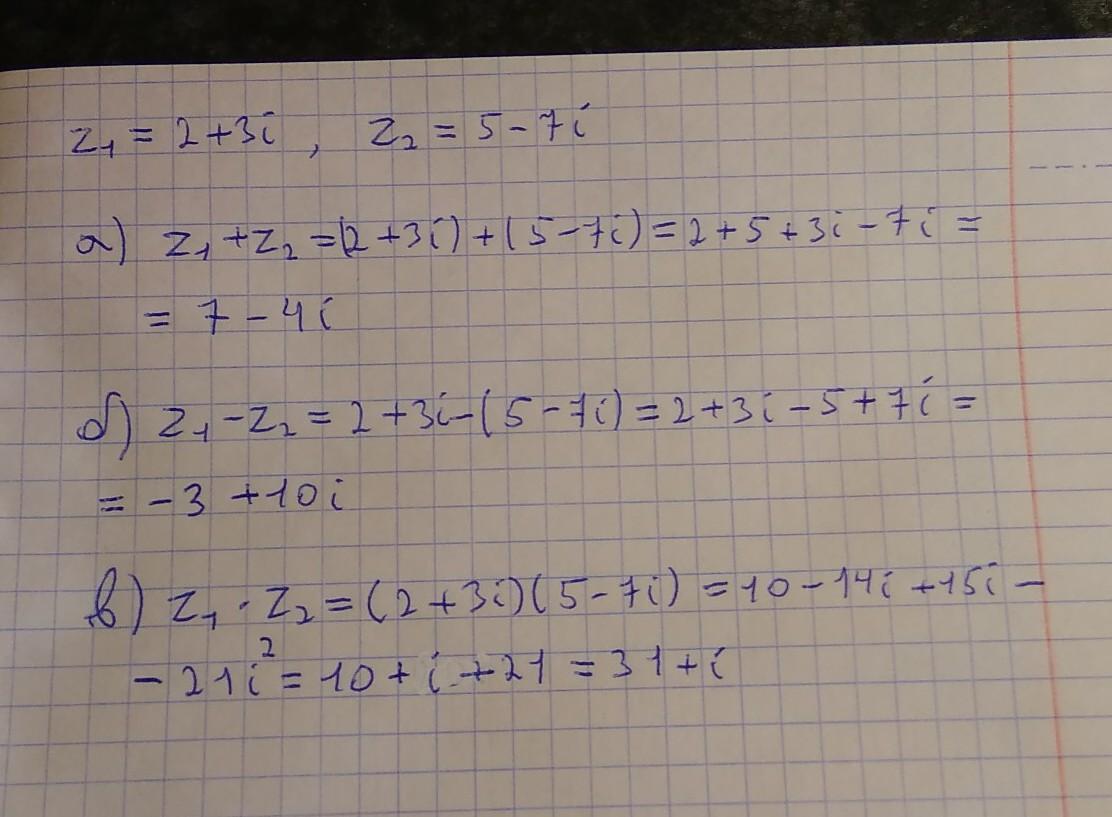 z₁ = 2 + 3i , z₂ = 5 - 7i
а) z₁ + z₂ = (2 + 3i) + (5 - 7i) = 2 + 5 + 3i - 7i =
= 7 - 4i
б) z₁ - z₂ = 2 + 3i - (5 - 7i) = 2 + 3i - 5 + 7i =
= -3 + 10i
в) z₁ · z₂ = (2 + 3i)(5 - 7i) = 10 - 14i + 15i -
- 21i² = 10 + i + 21 = 31 + i